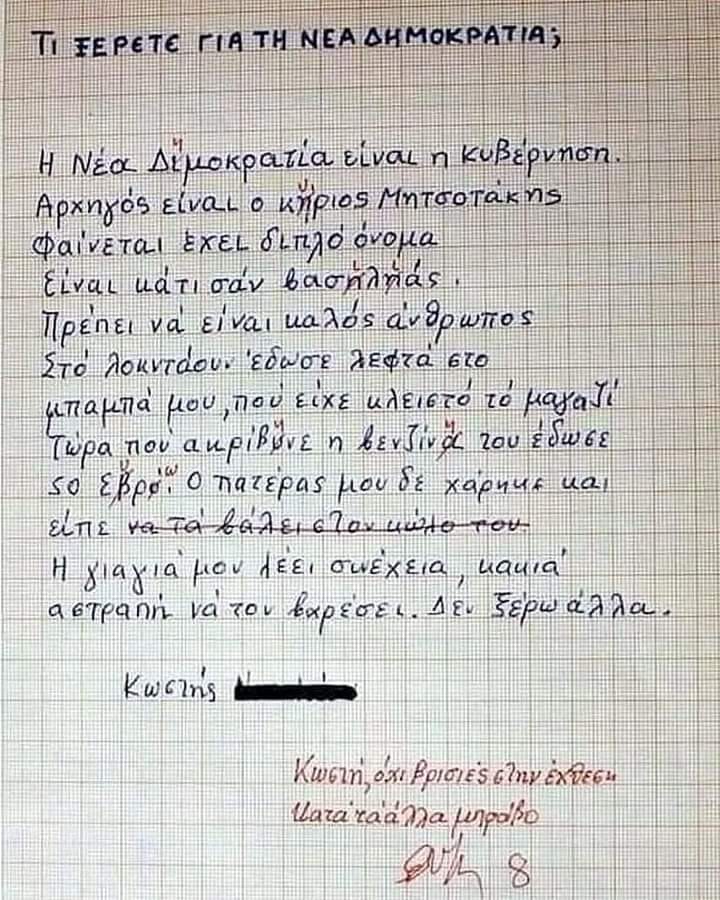 ΤΙ ΞΕΡΕΤΕ ΓΙΑ ΤΗ ΝΕΑ ΔΗΜΟΚΡΑΤΙΑ;
Η Νέα Δημοκρατία είναι η κυβέρνηση.
Αρχηγός είναι ο κήριος Μητσοτάκης
Φαίνεται έχει διπλό όνομα
Είναι κάτι σάν βασηληάς.
Πρέπει νά είναι καλός άνθρωπος
Στό λοκντάουν έδωσε λεφτά στο
μπαμπά μου, πού είχε κλειστό τό μαγαζί
Τώρα πού ακρίβυνε η βενζίνα του έδωσε
50 εβρό. Ο πατέρας μου δε χάρηκε και
είπε να τά βάλει στον κώλο του
Η γιαγιά μου λέει συνέχεια, κακιά
αστραπή νά τον βαρέσει. Δεν ξέρω άλλα.
Κωστής
Κωστή, όχι βρισιές στην έκθεση
Κατά τα άλλα μπράβο
8